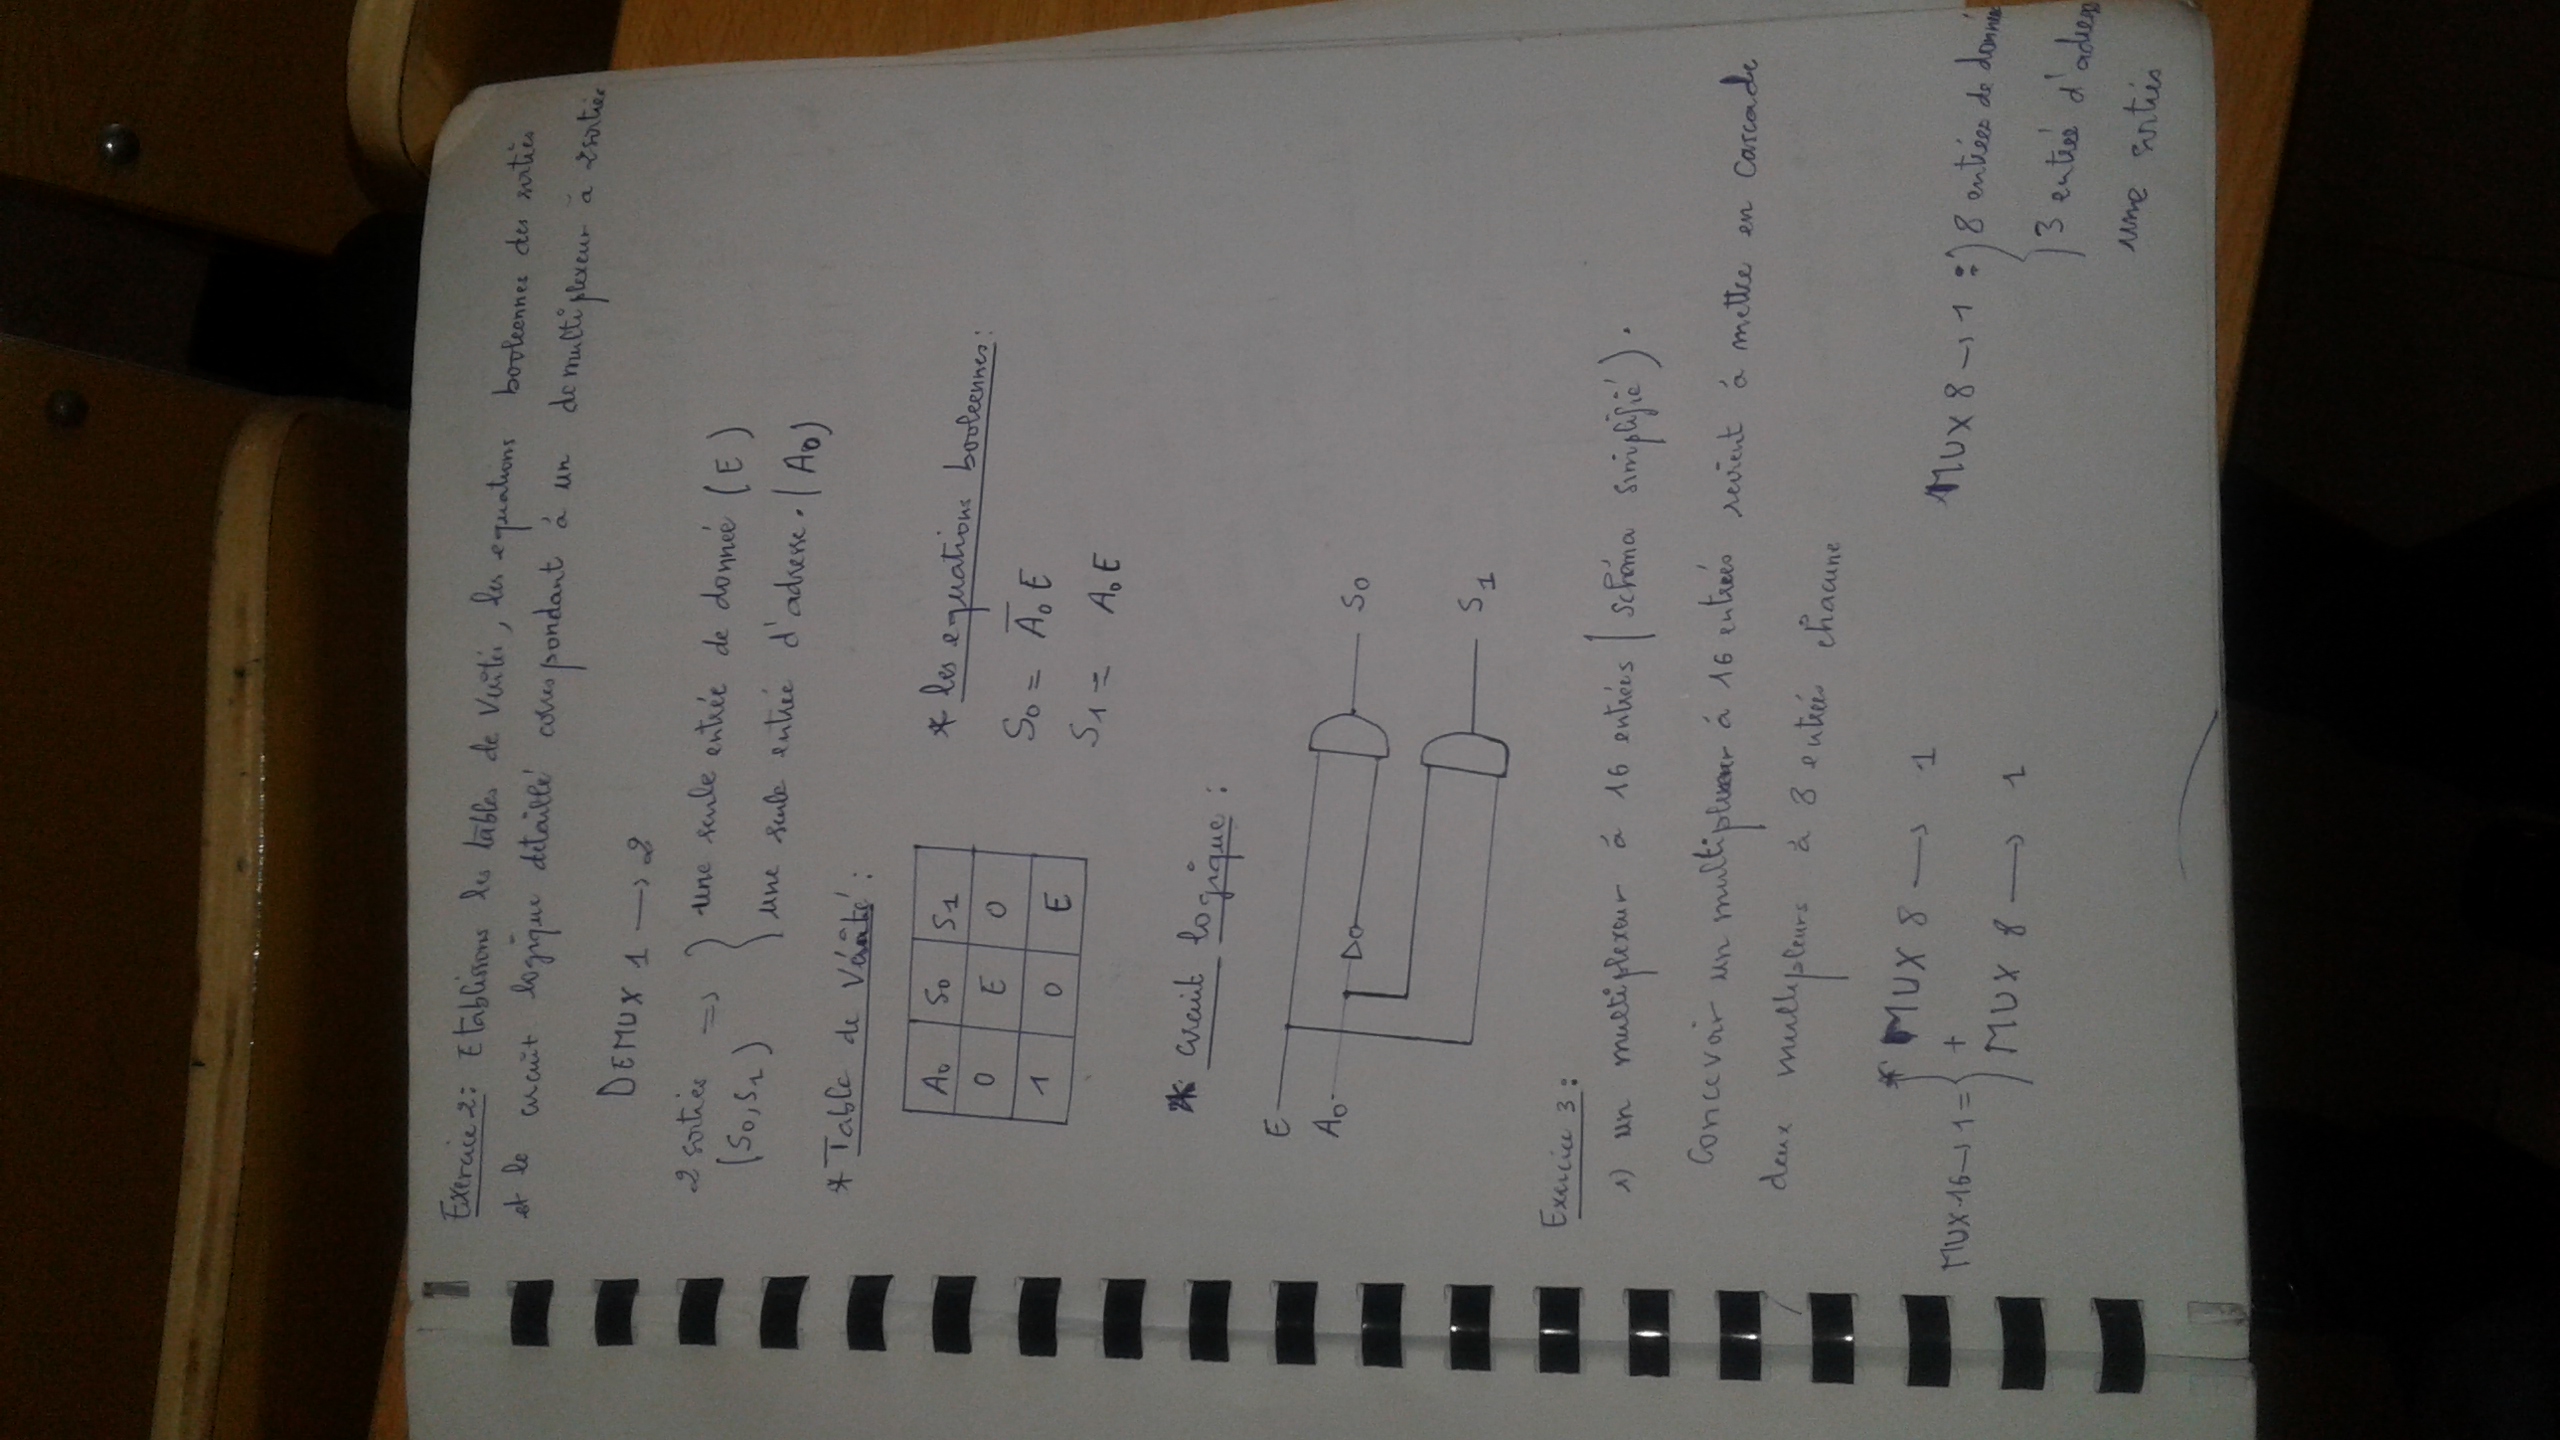 Exercice 2: Etablissons les tables de Vérités, les equations booleennes des sorties
et le circuit logique détaillé correspondant à un demultiplexeur à 2 sorties
DEMUX 1 → 2
2 sorties => } une seule entrée de donneé (E)
(S0, S1) } une seule entrée d'adresse. (A0)
* Table de Vérité :
A0 S0 S1
0 E 0
1 0 E
* les equations booleennes:
S0 = A̅0 E
S1 = A0 E
* circuit logique :
E
A0
S0
S1
Exercice 3 :
1) un multiplexeur à 16 entrées (schéma simplifié).
Concevoir un multiplexeur à 16 entreés revient à mettre en cascade
deux multiplexeurs à 8 entreés chacune
* MUX 8 → 1
MUX 16 → 1 = { +
MUX 8 → 1
MUX 8 → 1 : } 8 entrées de donnée
3 entreé d'adress
une sorties